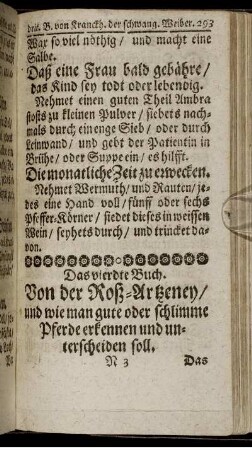 dritt. B. von Kranckh. der schwang. Weiber. 293
Wax so viel nöthig / und macht eine
Salbe.
Daß eine Frau bald gebähre /
das Kind sey todt oder lebendig.
Nehmet einen guten Theil Ambra
stosts zu kleinen Pulver / siebets nach-
mals durch ein enge Sieb / oder durch
Leinwand / und gebt der Patientin in
Brühe / oder Suppe ein / es hilfft.
Die monatliche Zeit zu erwecken.
Nehmet Wermuth / und Rauten / je-
des eine Hand voll / fünff oder sechs
Pfeffer-Körner / siedet dieses in weissen
Wein / seyhets durch / und trincket da-
von.
Das vierdte Buch.
Von der Roß-Artzeney /
und wie man gute oder schlimme
Pferde erkennen und un-
terscheiden soll.
N 3 Das